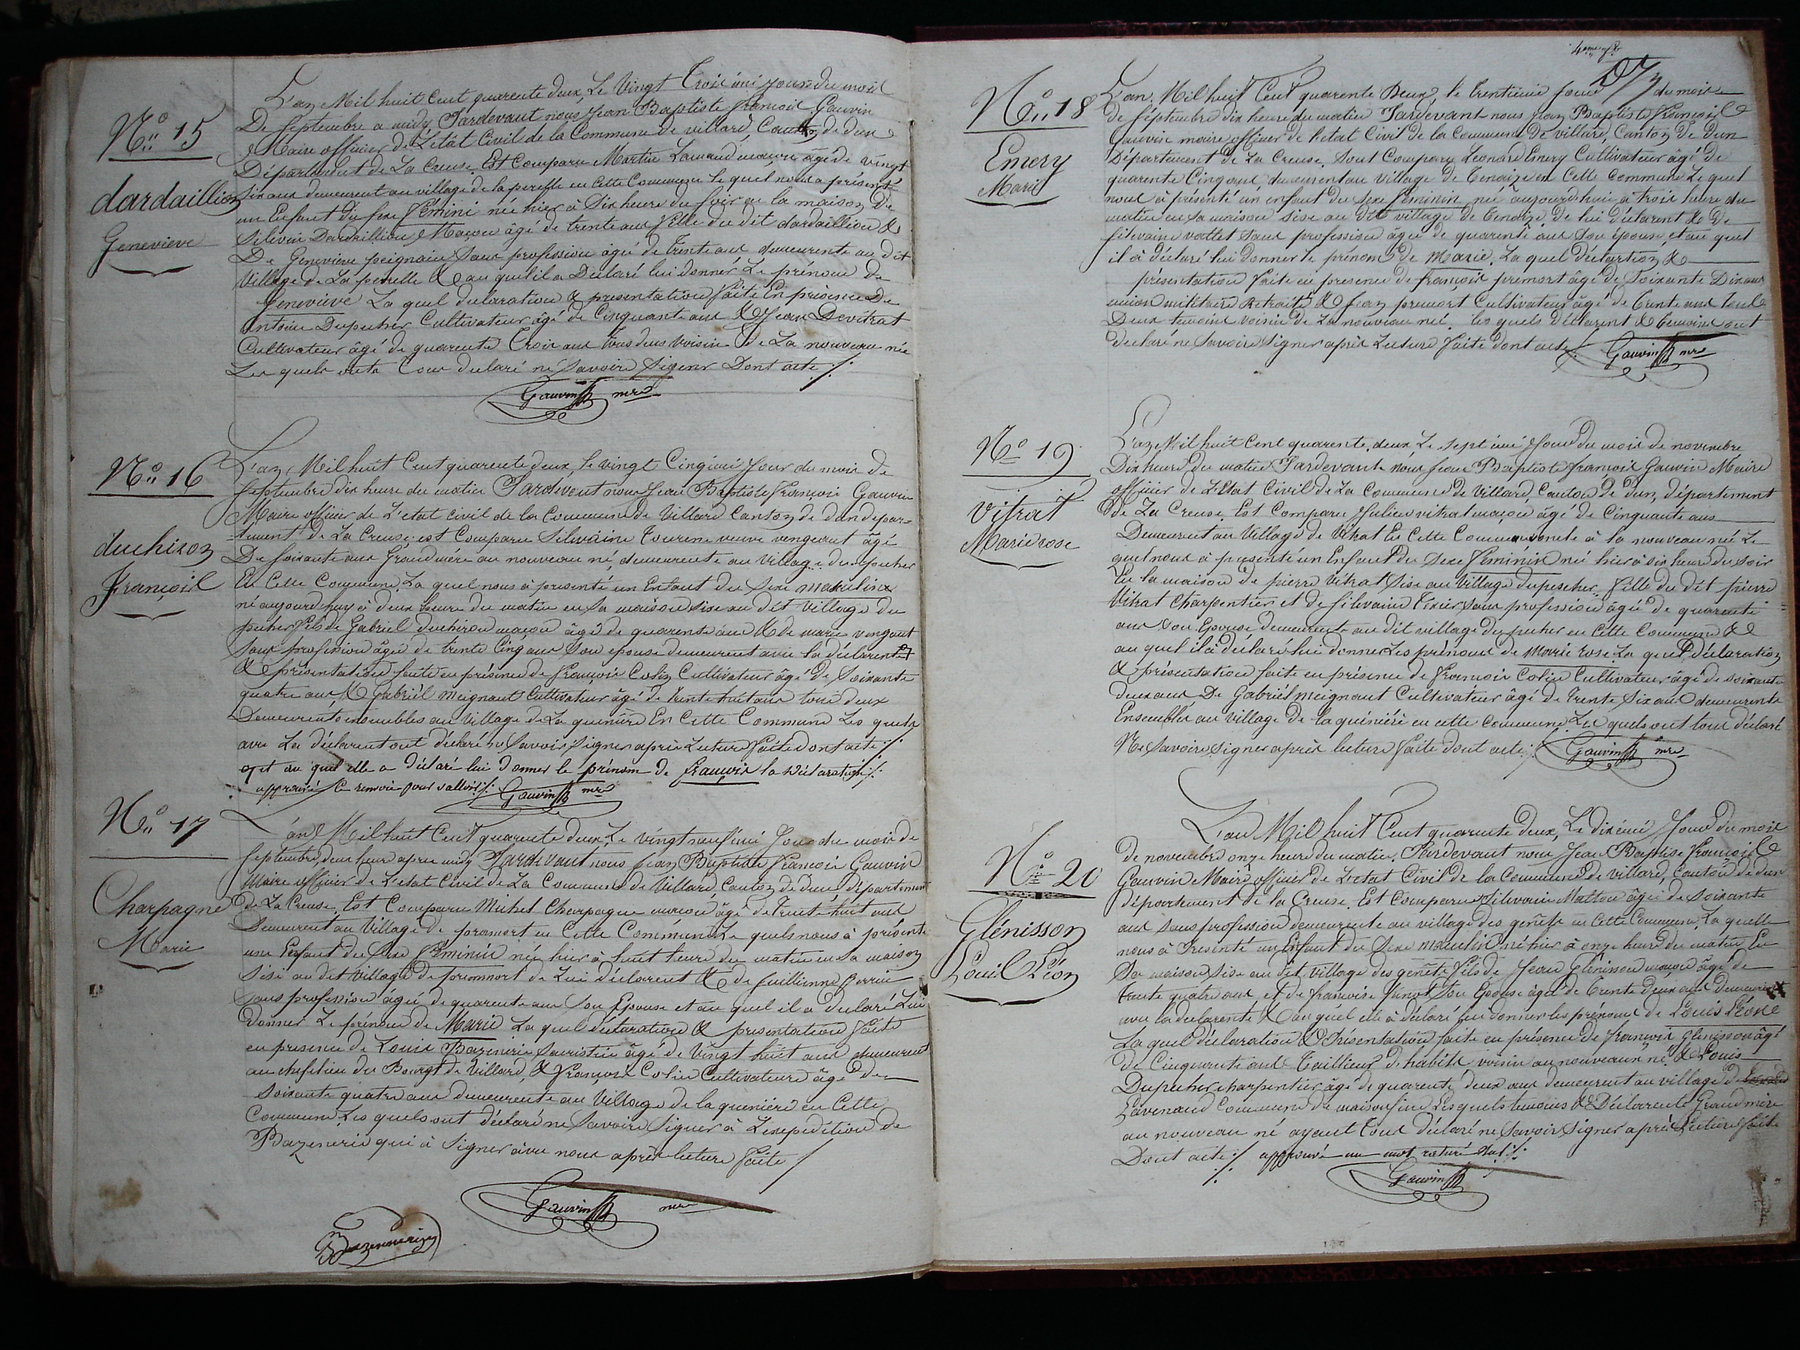 N.° 15
dardaillion
Genevieve
L'an Mil huit Cent quarente deux Le Vingt Troisième jour du mois
De Septembre a midy Pardevant nous Jean Baptiste François Gauvin
Maire officier de L'état Civil de la Commune de villard, Canton de dun
Département de La Creuse. Est Comparu Martin Lamaud maçon âgé de vingt
six ans demeurent au village de la perelle en Cette Commune Le quel nous a présenté
un Enfant du sexe Féminin née hier à Six heure du soir en la maison de
Silvain Dardaillion Maçon âgé de trente ans Fille du dit dardaillion &
De Geneviève peignain Sans profession âgé de Trente ans demeurente au dit
Village de La perelle & au quel il a Déclaré lui donner Le prénom de
Geneviève La quel declaration & presentation faite En présence de
Antoine Dupeucher Cultivateur âgé de Cinquante ans & Jean Devitrat
Cultivateur âgé de quarente Trois ans Tous deux Voisin De La nouveau née
Les quels ont Tous declaré ne Savoire Signer Dont acte
Gauvin mre
N.° 16
duchiron
François
L'an Mil huit Cent quarente deux, le vingt Cinqième Jour du mois de
Septembre dix heure du matin Pardevent nous Jean Baptiste François Gauvin
Maire officier de L'etat Civil de la Commune de Villard Canton de dun depar-
tement De La Creuse est Comparu Silvaine Tourenne veuve vengeant âgé
De Soixante ans Grand mère au nouveau né, demeurente au Village du peucher
En Cette Commune La quel nous à présenté un Enfant du Sexe masculin
né aujourd'huy à deux heure du matin en sa maison sise au dit Village du
peucher Fils de Gabriel duchiron maçon âgé de quarente ans & de marie vengeant
sans profession âgée de trente cinq ans Son épouse demeurent avec la déclarente
& présentation faite en présence de François Colin Cultivateur âgé de Soixante
quatre ans, & Gabriel meignant Cultivateur âgé de Trente huit ans tous deux
Demeurents ensembles au village de La quenière En Cette Commune Les quels
avec La déclarent ont déclaré ne Savoir Signer après Lecture Faite dont acte
et au quel elle a déclaré lui donner le prénom de françois la déclaration
approuvé le renvoie pour valloir
Gauvin mre
N.° 17
Charpagne
Marie
L'an Mil huit Cent quarente deux, Le vingt neufième Jour du mois de
Septembre, deux heure apres midy Pardevant nous Jean Baptiste François Gauvin
Maire officier de L'etat Civil de La Commune de Villard Canton de dun département
de La Creuse, Est Comparu Michel Charpagne maçon âgé de Trente huit ans
Demeurent au Village de premort en Cette Commune Le quels nous à présenté
une Enfant du Sexe Féminin née hier à huit heure du matin en sa maison
sise au dit Village de premort de Lui déclarent & de Juillienne Perrin
sans profession âgée de quarente ans Son Epouse et au quel il a declaré Lui
donner Le prénom de Marie La quel déclaration & présentation Faite
en presence de Louis Bazenerie Sacristin âgé de Vingt huit ans demeurent
au chefslieu du Bourgt de Villard, & François Colin Cultivateur âgé de
Soixante quatre ans demeurente au Village de la queniére en Cette
Commune, Les quels ont déclaré ne Savoire Signer à L'exepetition de
Bazenerie qui à Signer avec nous après lecture Faite
Gauvin mre
Bazennerie
4eme
N.° 18
Emery
Marie
L'an, Mil huit Cent quarente Deux, le trentieme jour du mois
de Septembre dix heure du matin Pardevant nous Jean Baptiste François
Gauvin maire officier de l'etat Civil de la Commune de villard, Canton de Dun
Département de La Creuse, Sont Comparu Leonard Emery Cultivateur âgé de
quarente Cinq ans, demeurent au Village de Cenaize en Cette Commune Le quel
nous à présenté un enfant du Sexe Féminin née aujourd'hui à trois heure du
matin en sa maison sise au dit village de Cenaize, de lui déclarent & de
Silvaine vallet Sans profession âgée de quarente ans Son épouse, et au quel
il à déclaré lui donner le prénom de Marie, La quel déclartion &
présentation faite en presence de françois premort âgé de Soixante Dix ans
ancien militaire Retraité, & Jean premort Cultivateur âgé de Trente ans tous
Deux temoins voisin De La nouveau née. Les quels déclarent & temoins ont
declaré ne Savoire Signer après Lecture Faite dont acte
Gauvin mre
N.° 19
Vitrat
Marie rose
L'an Mil huit Cent quarente deux, Le Septième Jour du mois de novembre
Dix heure du matin Pardevant nous Jean Baptiste françois Gauvin Maire
officier de L'Etat Civil de La Commune de Villard, Canton De dun, département
de La Creuse Est Comparu Julien vitrat maçon âgé de Cinquante ans
Demeurent au Village de Vitrat En Cette Commune oncle à la nouveau né Le
quel nous à présenté un Enfant du Sexe Féminin né hier à Six heure du soir
En la maison de pierre Vitrat Sise au Village dupeucher, Fille du dit pierre
Vitrat Charpentier et de Silvaine Tixier Sans profession âgée de quarente
ans Son Epouse demeurente au dit village du peucher en Cette Commune &
au quel il à déclaré lui donner Les prénoms de Marie rose La quel déclaration
& présentation faite en présence de François Colin Cultivateur âgé de soixante
deux ans De Gabriel meignant Cultivateur âgé de Trente Six ans demeurents
Ensembles au village de la quénière en cette Commune, Les quels ont tous déclaré
Ne Savoire Signer après lecture Faite dont acte
Gauvin mre
N.° 20
Glénisson
Louis Léon
L'an Mil huit Cent quarente deux, Le dixième Jour du mois
de novembre onze heure du matin. Pardevant nous Jean Baptiste François
Gauvin Maire officier de L'etat Civil de la Commune de villard, Canton de dun
département de la Creuse, Est Comparu Silvaine Malton âgée de Soixante
ans sans profession demeurente au village des genêts en Cette Commune, La quelle
nous à Présenté un Enfant du Sexe masculin né hier à onze heure du matin En
Sa maison Sise au dit Village des genêts Fils de Jean Glénisson maçon âgé de
trente quatre ans, et de Françoise Junot Son Epouse âgée de Trente deux ans demeurent
avec la declarente & au quel elle à déclaré lui donner les prénoms de Louis Léon
La quel déclaration & Présentation faite en présence de François Glénisson âgé
de Cinquente ans Tailleur d'habits voisin au nouveau né, & Louis
Dupeucher charpentier âgé de quarente deux ans demeurent au village de
Lavenaud Commune de maisonfeine Les quels temoins & Déclarente Grand mère
au nouveau né ayant Tous déclaré ne Savoir Signer après Lecture faite
Dont acte approuvé un mot raturé nul
Gauvin